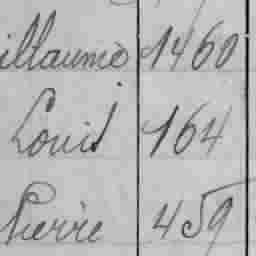 illaume 1460
Louis 164
Pierre 459